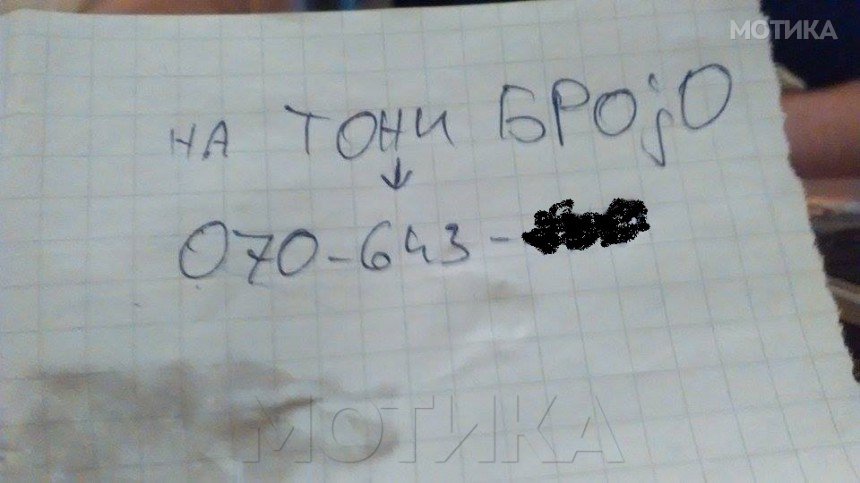 МОТИКА
НА ТОНИ БРОјО
070-643-
МОТИКА